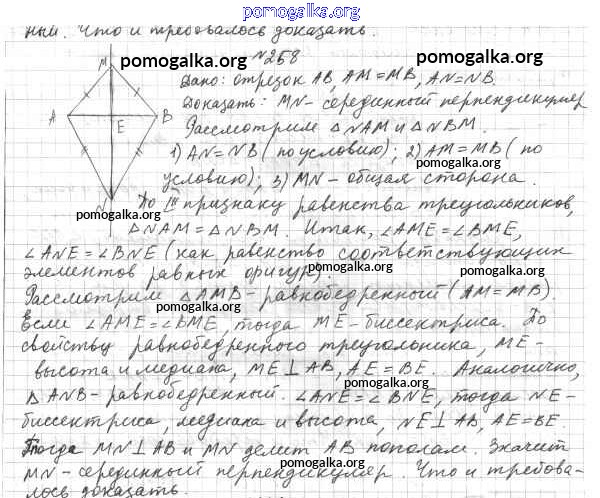 pomogalka.org
ный. Что и требовалось доказать.
№258
pomogalka.org
pomogalka.org
M
A
B
E
N
Дано: отрезок AB, AM = MB, AN = NB
Доказать: MN - серединный перпендикуляр
pomogalka.org
Рассмотрим △NAM и △NBM.
1) AN = NB (по условию); 2) AM = MB (по
pomogalka.org
условию); 3) MN - общая сторона.
По III признаку равенства треугольников,
pomogalka.org
△NAM = △NBM. Итак, ∠AME = ∠BME,
∠ANE = ∠BNE (как равенство соответствующих
элементов равных фигур).
pomogalka.org
Рассмотрим △AMB - равнобедренный (AM = MB).
pomogalka.org
Если ∠AME = ∠BME, тогда ME - биссектриса. По
свойству равнобедренного треугольника, ME -
высота и медиана, ME ⊥ AB, AE = BE. Аналогично,
pomogalka.org
△ANB - равнобедренный. ∠ANE = ∠BNE, тогда NE -
биссектриса, медиана и высота, NE ⊥ AB, AE = BE.
pomogalka.org
Тогда MN ⊥ AB и MN делит AB пополам. Значит
pomogalka.org
MN - серединный перпендикуляр. Что и требова-
лось доказать.
pomogalka.org